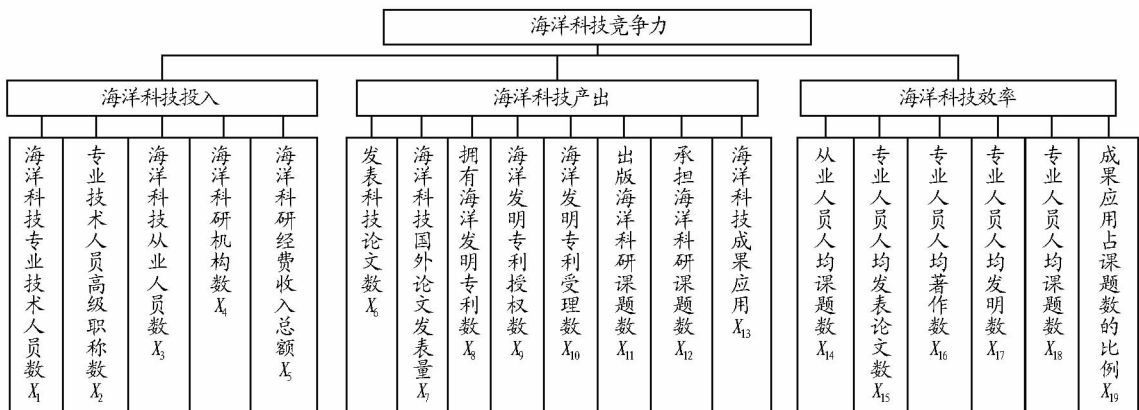 海洋科技竞争力
海洋科技投入
海洋科技产出
海洋科技效率
海洋科技专业技术人员数X1
专业技术人员高级职称数X2
海洋科技从业人员数X3
海洋科研机构数X4
海洋科研经费收入总额X5
发表科技论文数X6
海洋科技国外论文发表量X7
拥有海洋发明专利数X8
海洋发明专利授权数X9
海洋发明专利受理数X10
出版海洋科研课题数X11
承担海洋科研课题数X12
海洋科技成果应用X13
从业人员人均课题数X14
专业人员人均发表论文数X15
专业人员人均著作数X16
专业人员人均发明数X17
专业人员人均课题数X18
成果应用占课题数的比例X19